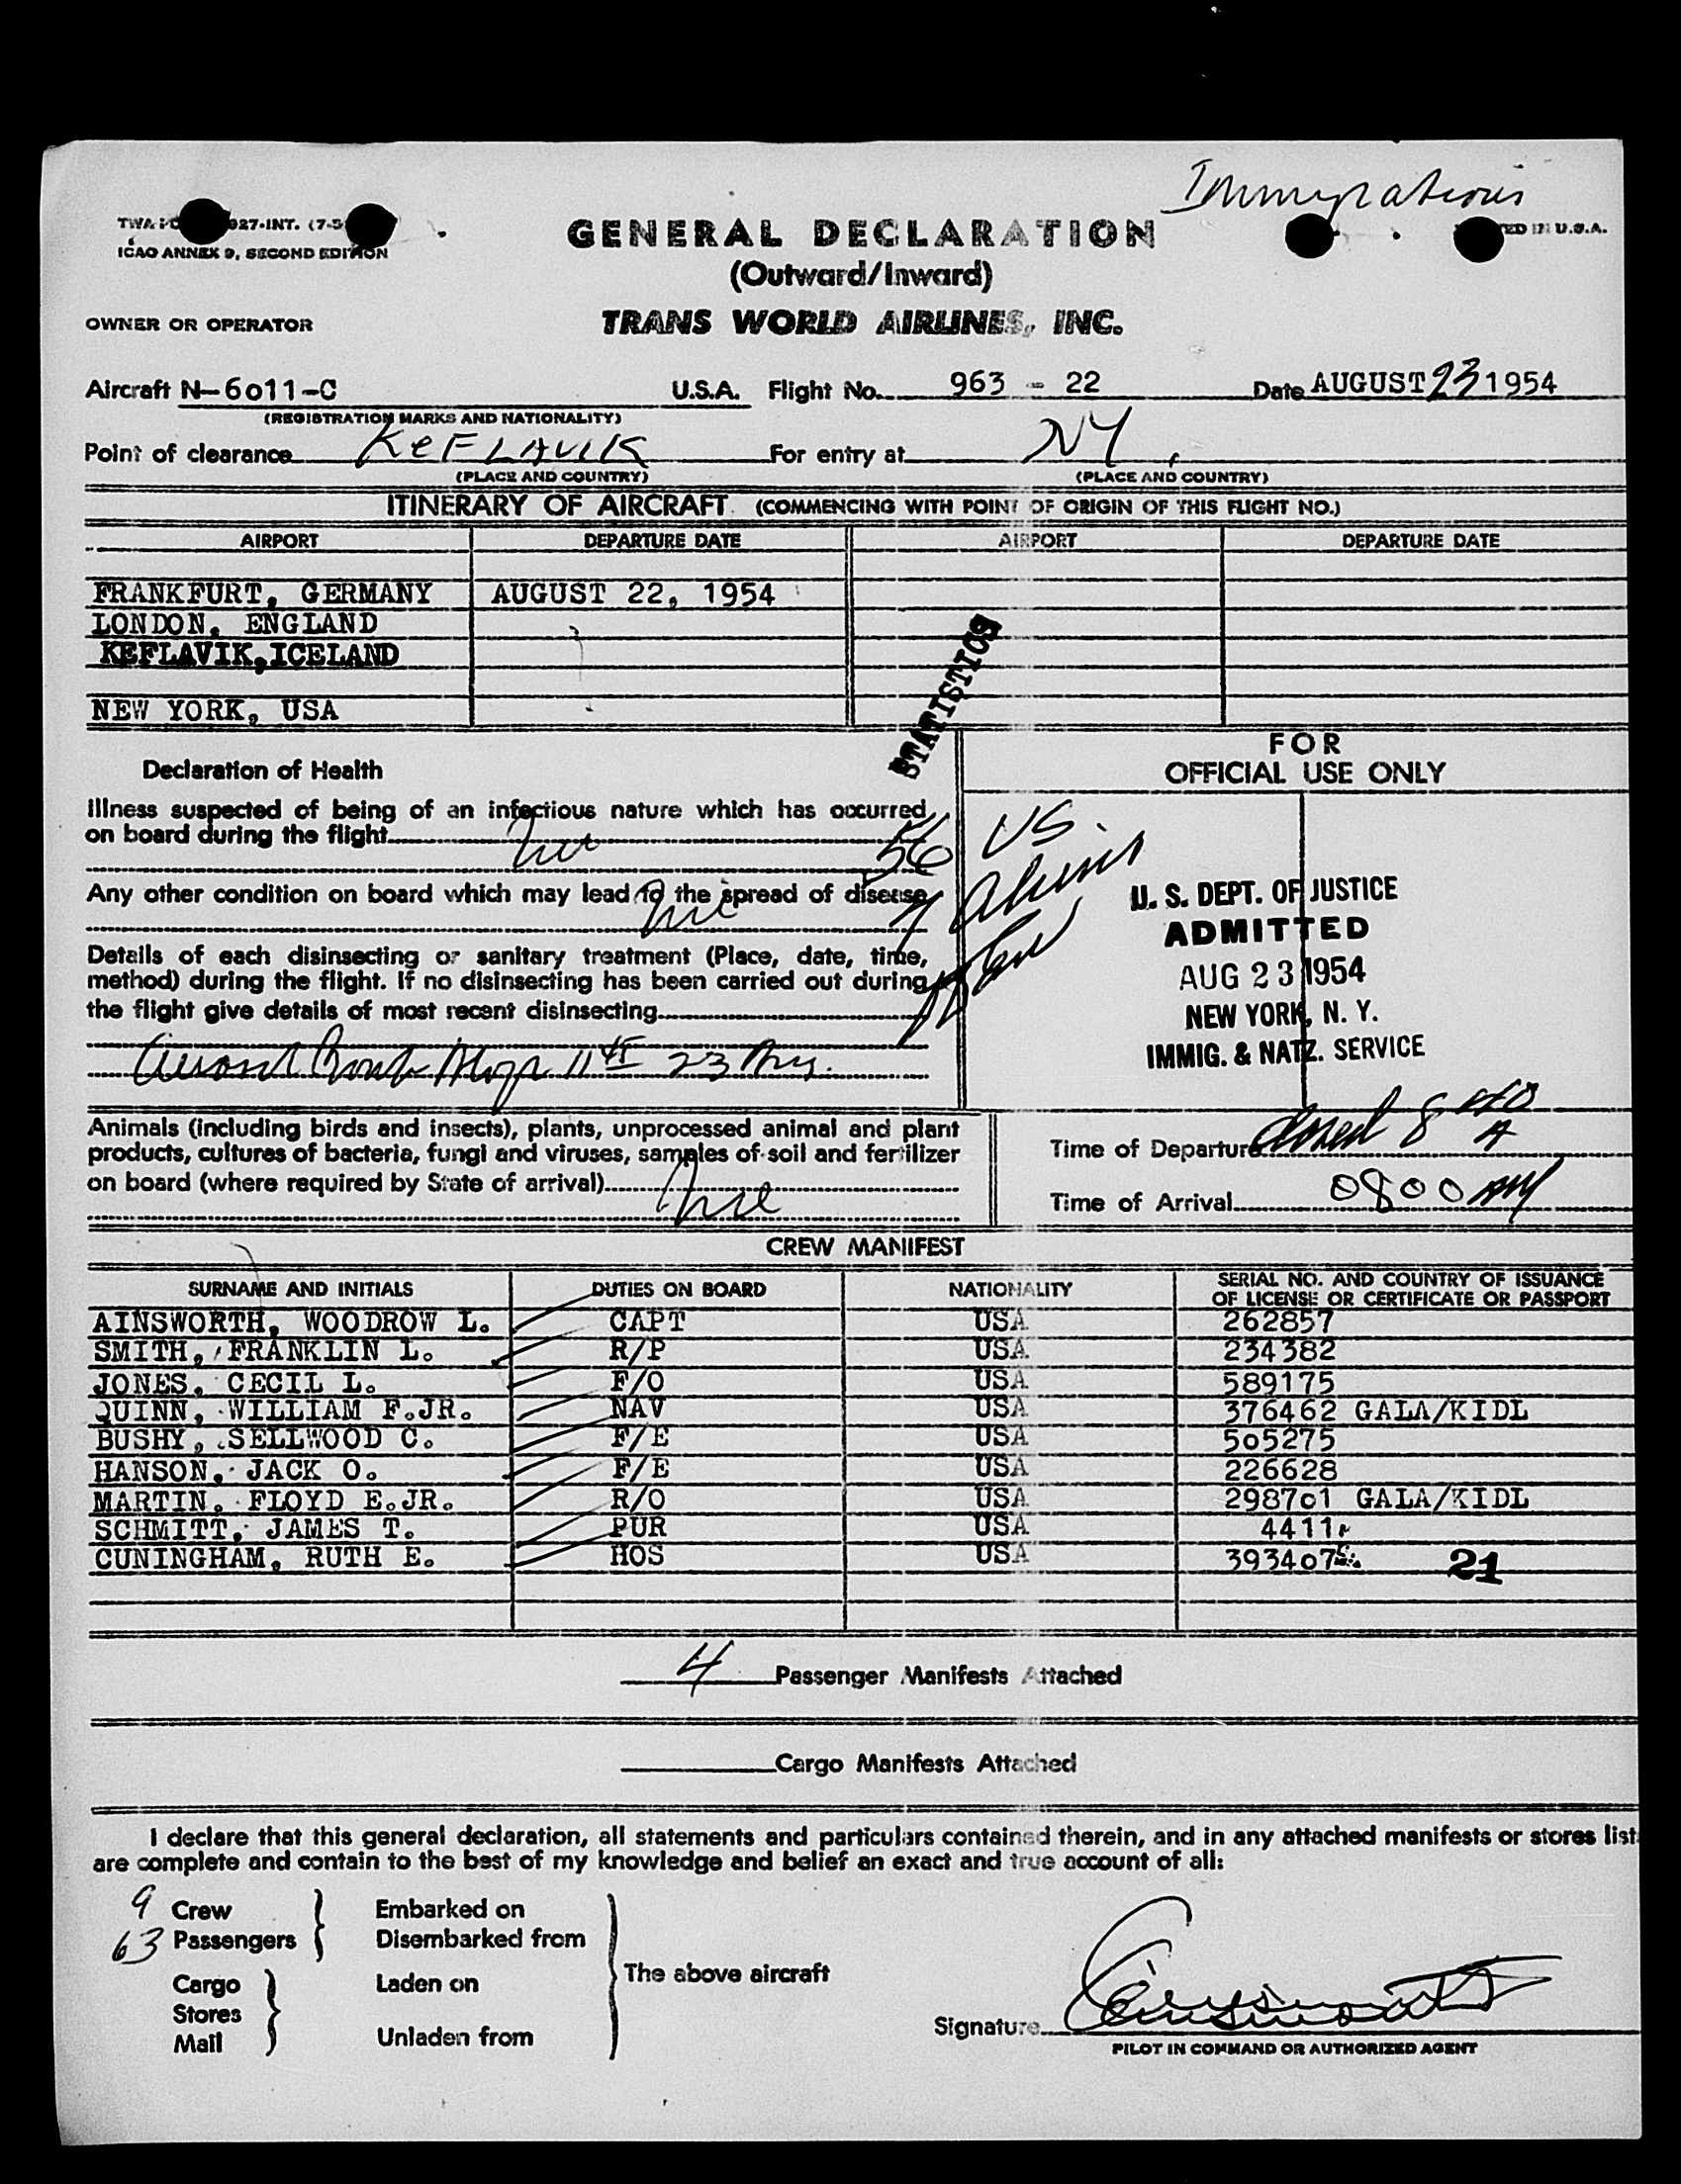 Immigration
TWA 927-INT. (7-5
ICAO ANNEX 9, SECOND EDITION
U.S.A.
GENERAL DECLARATION
(Outward/Inward)
OWNER OR OPERATOR
TRANS WORLD AIRLINES, INC.
Aircraft N-6011-C U.S.A. Flight No. 963 - 22 Date AUGUST 23 1954
(REGISTRATION MARKS AND NATIONALITY)
Point of clearance KEFLAVIK For entry at NY
(PLACE AND COUNTRY) (PLACE AND COUNTRY)
ITINERARY OF AIRCRAFT (COMMENCING WITH POINT OF ORIGIN OF THIS FLIGHT NO.)
AIRPORT DEPARTURE DATE AIRPORT DEPARTURE DATE
FRANKFURT, GERMANY AUGUST 22, 1954
LONDON, ENGLAND
KEFLAVIK, ICELAND
NEW YORK, USA
STATISTICS
Declaration of Health
Illness suspected of being of an infectious nature which has occurred
on board during the flight
56 US
Any other condition on board which may lead to the spread of disease
7 Aliens
Details of each disinsecting or sanitary treatment (Place, date, time,
method) during the flight. If no disinsecting has been carried out during
the flight give details of most recent disinsecting
Aerosol Bomb
FOR
OFFICIAL USE ONLY
U. S. DEPT. OF JUSTICE
ADMITTED
AUG 23 1954
NEW YORK, N. Y.
IMMIG. & NATZ. SERVICE
Animals (including birds and insects), plants, unprocessed animal and plant
products, cultures of bacteria, fungi and viruses, samples of soil and fertilizer
on board (where required by State of arrival)
Time of Departure closed 8
Time of Arrival 0800 AM
CREW MANIFEST
SURNAME AND INITIALS DUTIES ON BOARD NATIONALITY SERIAL NO. AND COUNTRY OF ISSUANCE
OF LICENSE OR CERTIFICATE OR PASSPORT
AINSWORTH, WOODROW L. CAPT USA 262857
SMITH, FRANKLIN L. R/P USA 234382
JONES, CECIL L. F/O USA 589175
QUINN, WILLIAM F.JR. NAV USA 376462 GALA/KIDL
BUSHY, SELLWOOD C. F/E USA 505275
HANSON, JACK O. F/E USA 226628
MARTIN, FLOYD E.JR. R/O USA 298701 GALA/KIDL
SCHMITT, JAMES T. PUR USA 4411
CUNINGHAM, RUTH E. HOS USA 393407 21
4 Passenger Manifests Attached
Cargo Manifests Attached
I declare that this general declaration, all statements and particulars contained therein, and in any attached manifests or stores list
are complete and contain to the best of my knowledge and belief an exact and true account of all:
9 Crew Embarked on
63 Passengers Disembarked from
Cargo Laden on The above aircraft
Stores
Mail Unladen from
Signature Ainsworth
PILOT IN COMMAND OR AUTHORIZED AGENT